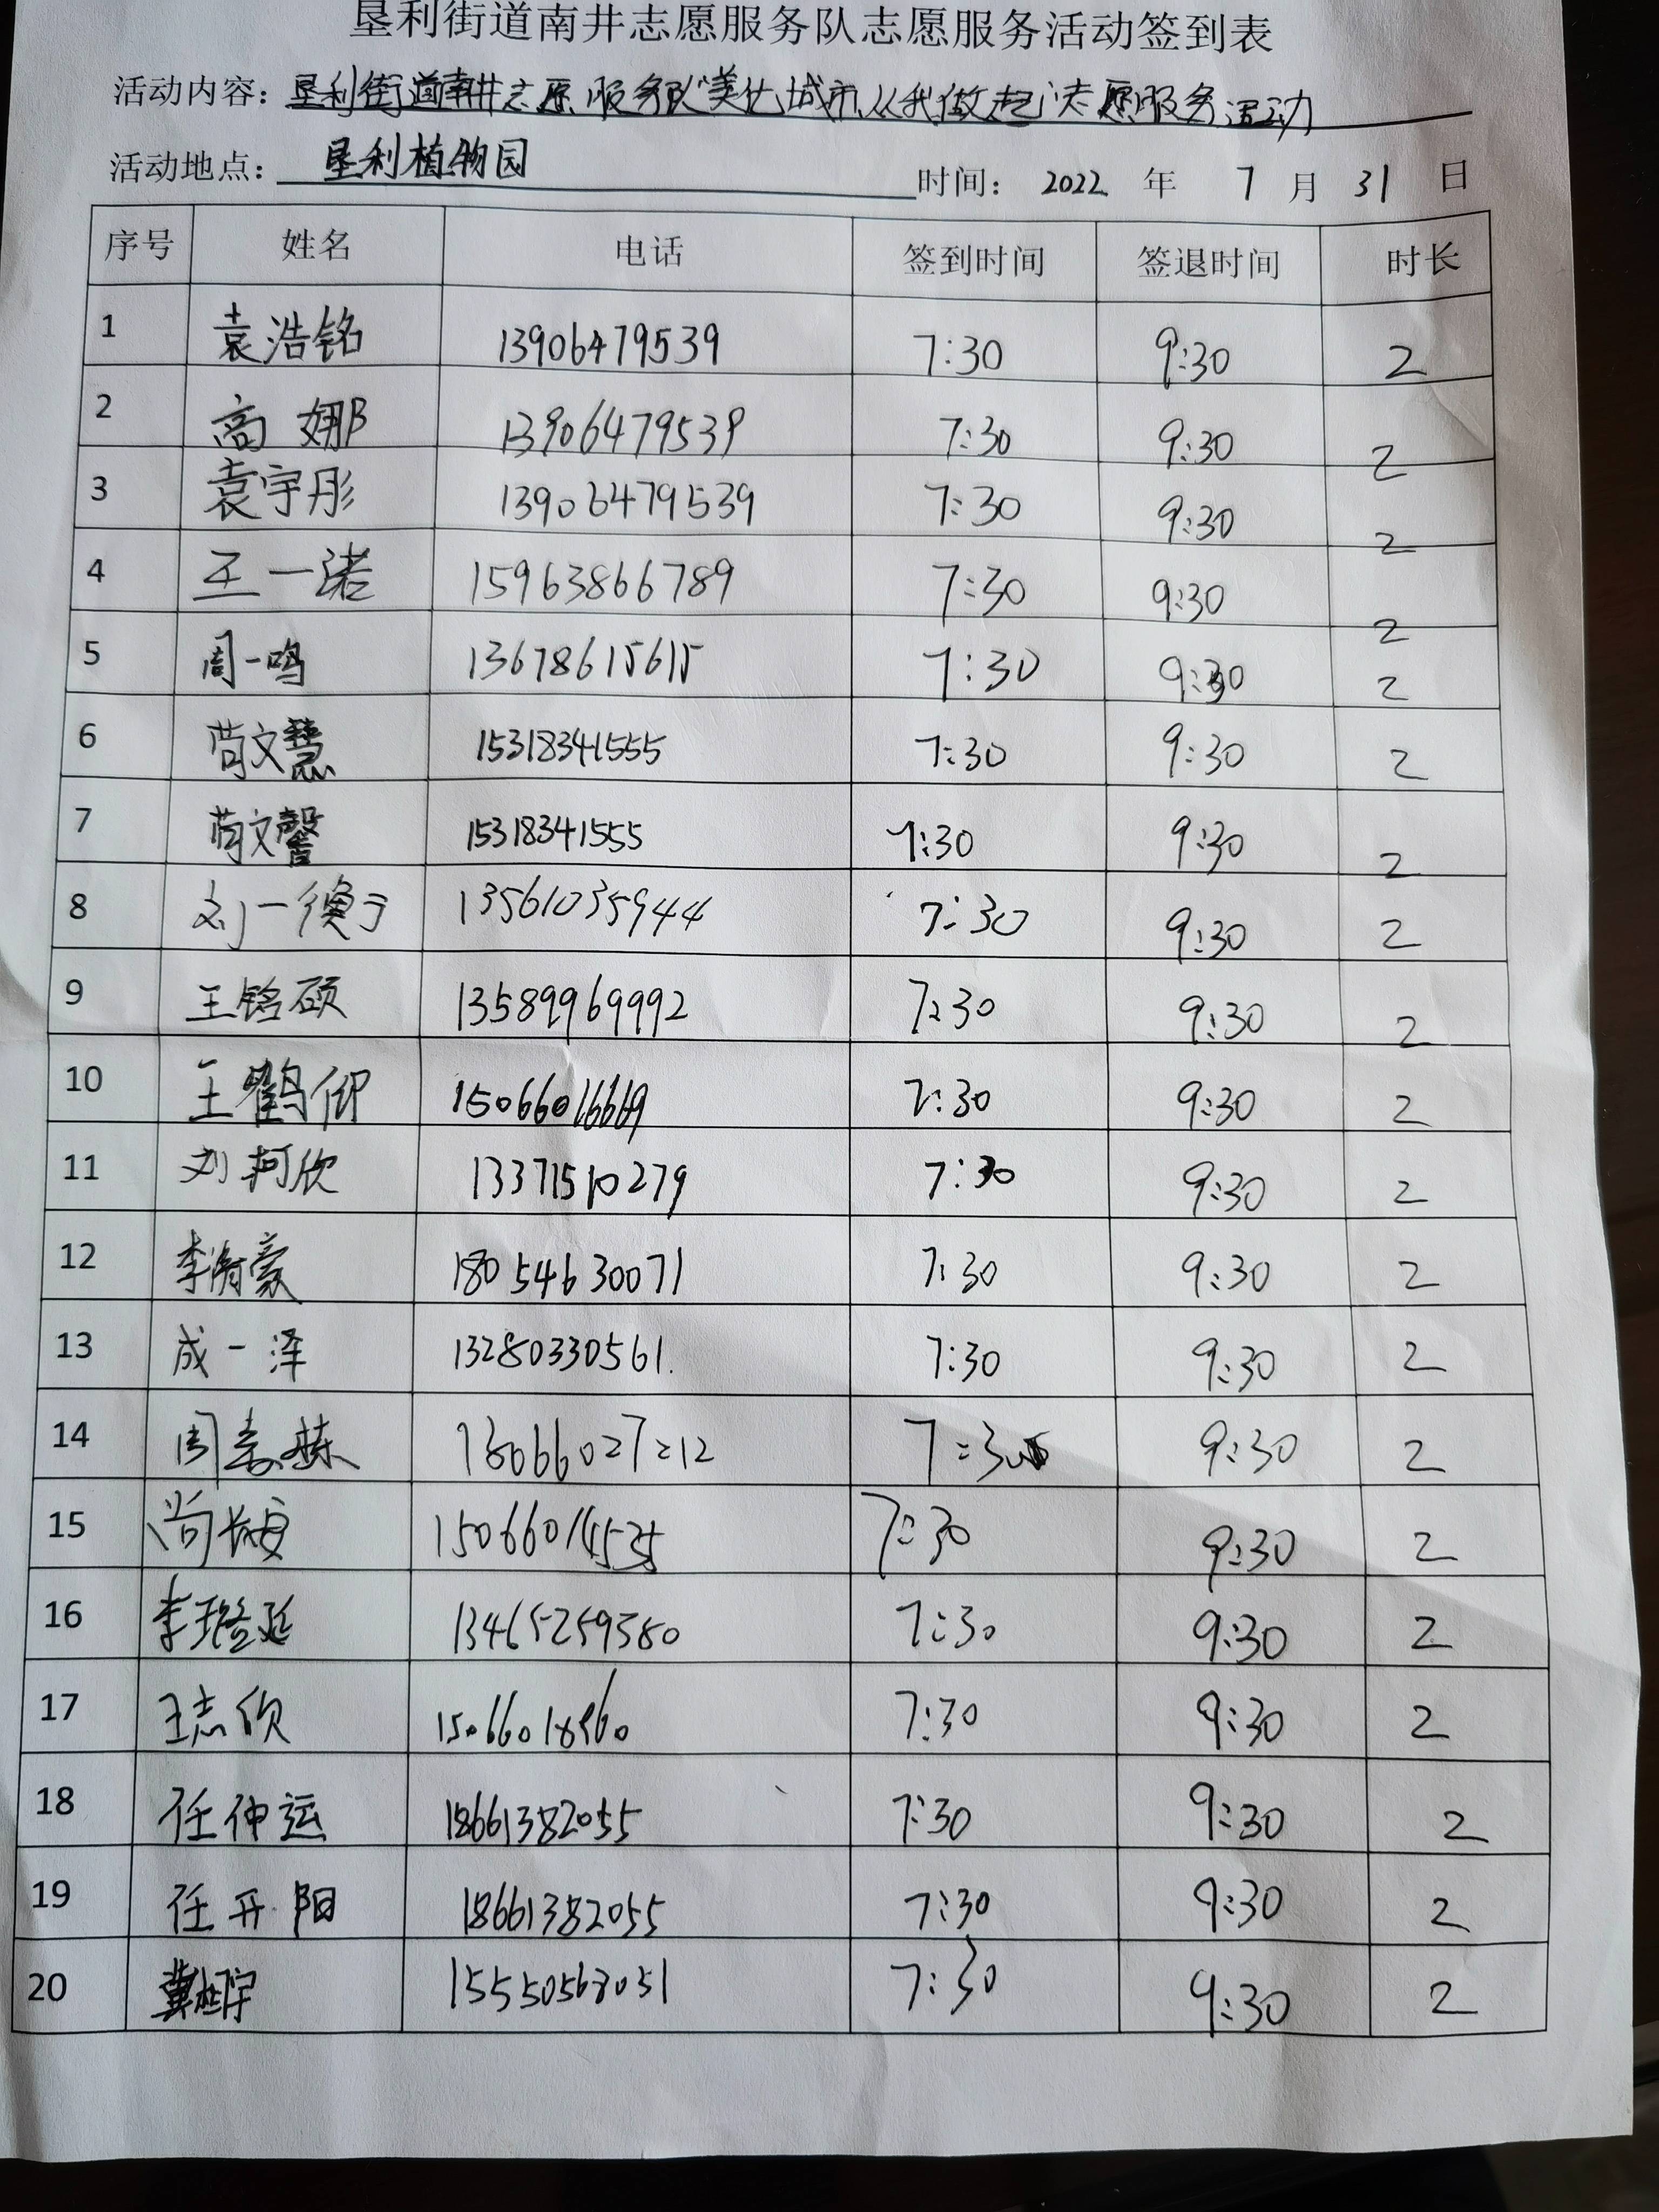 垦利街道南井志愿服务队志愿服务活动签到表
活动内容：垦利街道南井志愿服务队“美化城市,从我做起”志愿服务活动
活动地点：垦利植物园 时间：2022 年 7 月 31 日
序号 姓名 电话 签到时间 签退时间 时长
1 袁浩铭 13906479539 7:30 9:30 2
2 高娜 13906479539 7:30 9:30 2
3 袁宇彤 13906479539 7:30 9:30 2
4 王一诺 15963866789 7:30 9:30 2
5 周一鸣 13678615615 7:30 9:30 2
6 苘文慧 15318341555 7:30 9:30 2
7 苘文馨 15318341555 7:30 9:30 2
8 刘一 13561035944 7:30 9:30 2
9 王铭硕 13589969992 7:30 9:30 2
10 王鹤仰 7:30 9:30 2
11 刘轲欣 13371510279 7:30 9:30 2
12 李 豪 18054630071 7:30 9:30 2
13 成一泽 13280330561. 7:30 9:30 2
14 周 栋 7:30 9:30 2
15 尚 7:30 9:30 2
16 李 延 13465259580 7:30 9:30 2
17 王志欣 7:30 9:30 2
18 任仲运 18661382055 7:30 9:30 2
19 任开阳 18661382055 7:30 9:30 2
20 冀 宇 15550568051 7:30 9:30 2